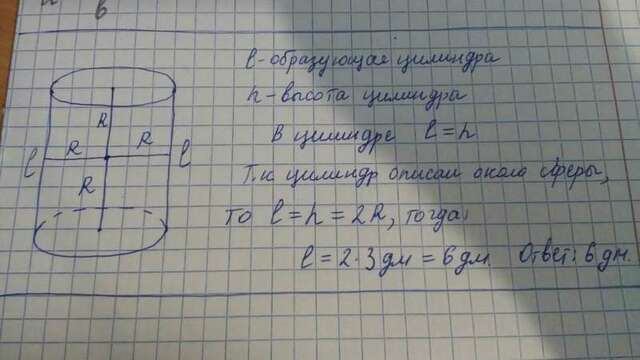 в
l - образующая цилиндра
h - высота цилиндра
В цилиндре l = h
Т.к цилиндр описан около сферы,
то l = h = 2R, тогда
l = 2·3дм = 6 дм. Ответ: 6 дм.
R
R R
l l
R